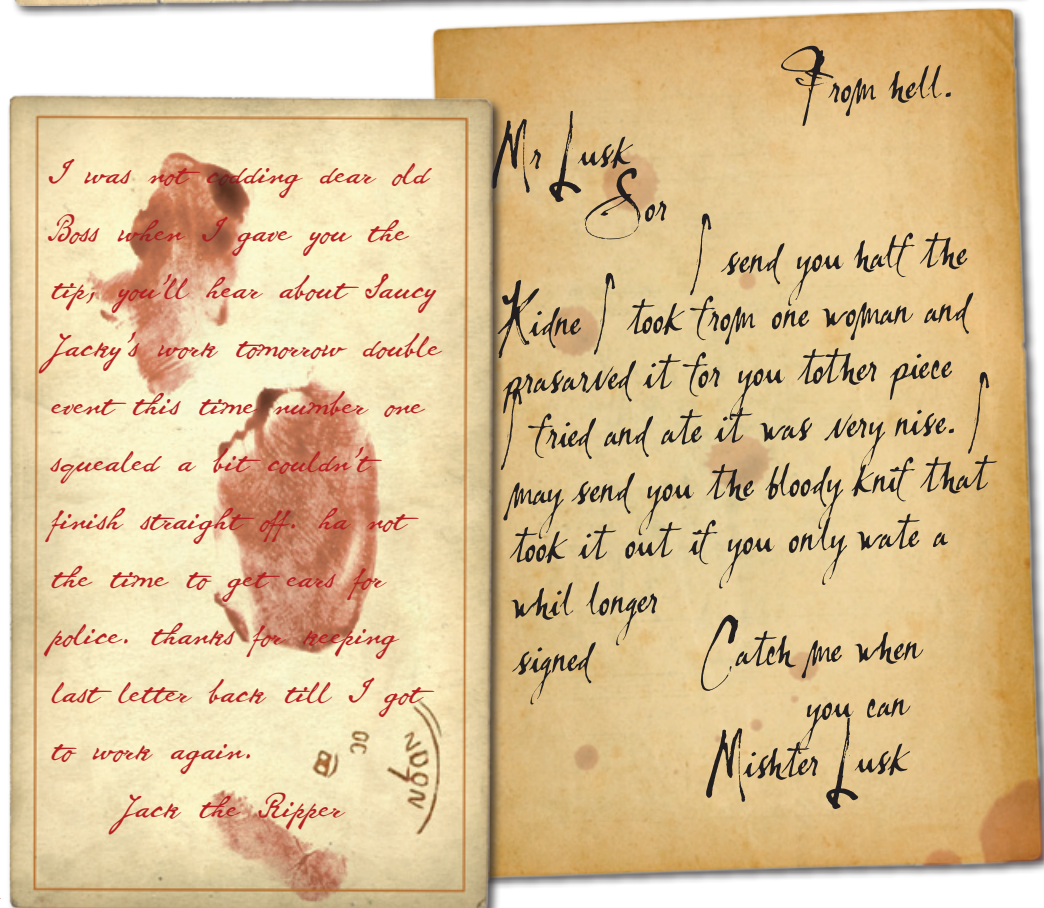 I was not codding dear old
Boss when I gave you the
tip; you'll hear about Saucy
Jacky's work tomorrow double
event this time number one
squealed a bit couldn't
finish straight off. ha not
the time to get ears for
police. thanks for keeping
last letter back till I got
to work again.
Jack the Ripper
NDON
OC
8
From hell.
Mr Lusk
Sor
I send you half the
Kidne I took from one woman and
prasarved it for you tother piece
I fried and ate it was very nise. I
may send you the bloody knif that
took it out if you only wate a
whil longer
signed
Catch me when
you can
Mishter Lusk